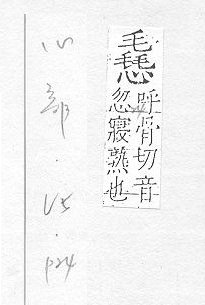 呼骨切音
忽寢熟也
心部 . . p24